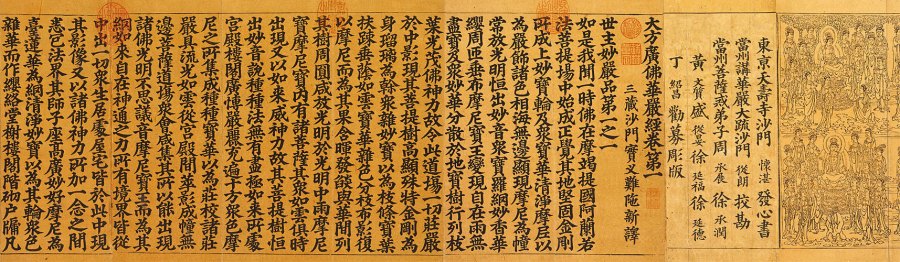 東京大壽寺沙門 懷湛 發心書
當州講華嚴大疏沙門 從朗 挍勘
當州菩薩戒弟子周 承展 徐 承潤
黃 盛 從晏 徐 延福 徐 延德
丁 紹 勸募彫版
大方廣佛華嚴經卷第一
三藏沙門實叉難陁新譯
世主妙嚴品第一之一
如是我聞一時佛在摩竭提國阿蘭若
法菩提場中始成正覺其地堅固金剛
所成上妙寶輪及衆寶華清淨摩尼以
為嚴飾諸色相海無邊顯現摩尼為幢
常放光明恒出妙音衆寶羅網妙香華
纓周匝垂布摩尼寶王變現自在雨無
盡寶及衆妙華分散於地寶樹行列枝
葉光茂佛神力故令此道場一切莊嚴
於中影現其菩提樹高顯殊特金剛為
身瑠璃為幹衆雜妙寶以為枝條寶葉
扶踈垂蔭如雲寶華雜色分枝布影復
以摩尼而為其果含暉發焰與華間列
其樹周圓咸放光明於光明中雨摩尼
寶摩尼寶內有諸菩薩其衆如雲俱時
出現又以如來威神力故其菩提樹恒
出妙音說種種法無有盡極如來所處
宮殿樓閣廣博嚴麗充遍十方衆色摩
尼之所集成種種寶華以為莊挍諸莊
嚴具流光如雲從宮殿間萃影成幢無
邊菩薩道場衆會咸集其所以能出現
諸佛光明不思議音摩尼寶王而為其
網如來自在神通之力所有境界皆從
中出一切衆生居處屋宅皆於此中現
其影像又以諸佛神力所加一念之間
悉包法界其師子座高廣妙好摩尼為
臺蓮華為網清淨妙寶以為其輪衆色
雜華而作瓔珞堂榭樓閣階砌戶牖凡